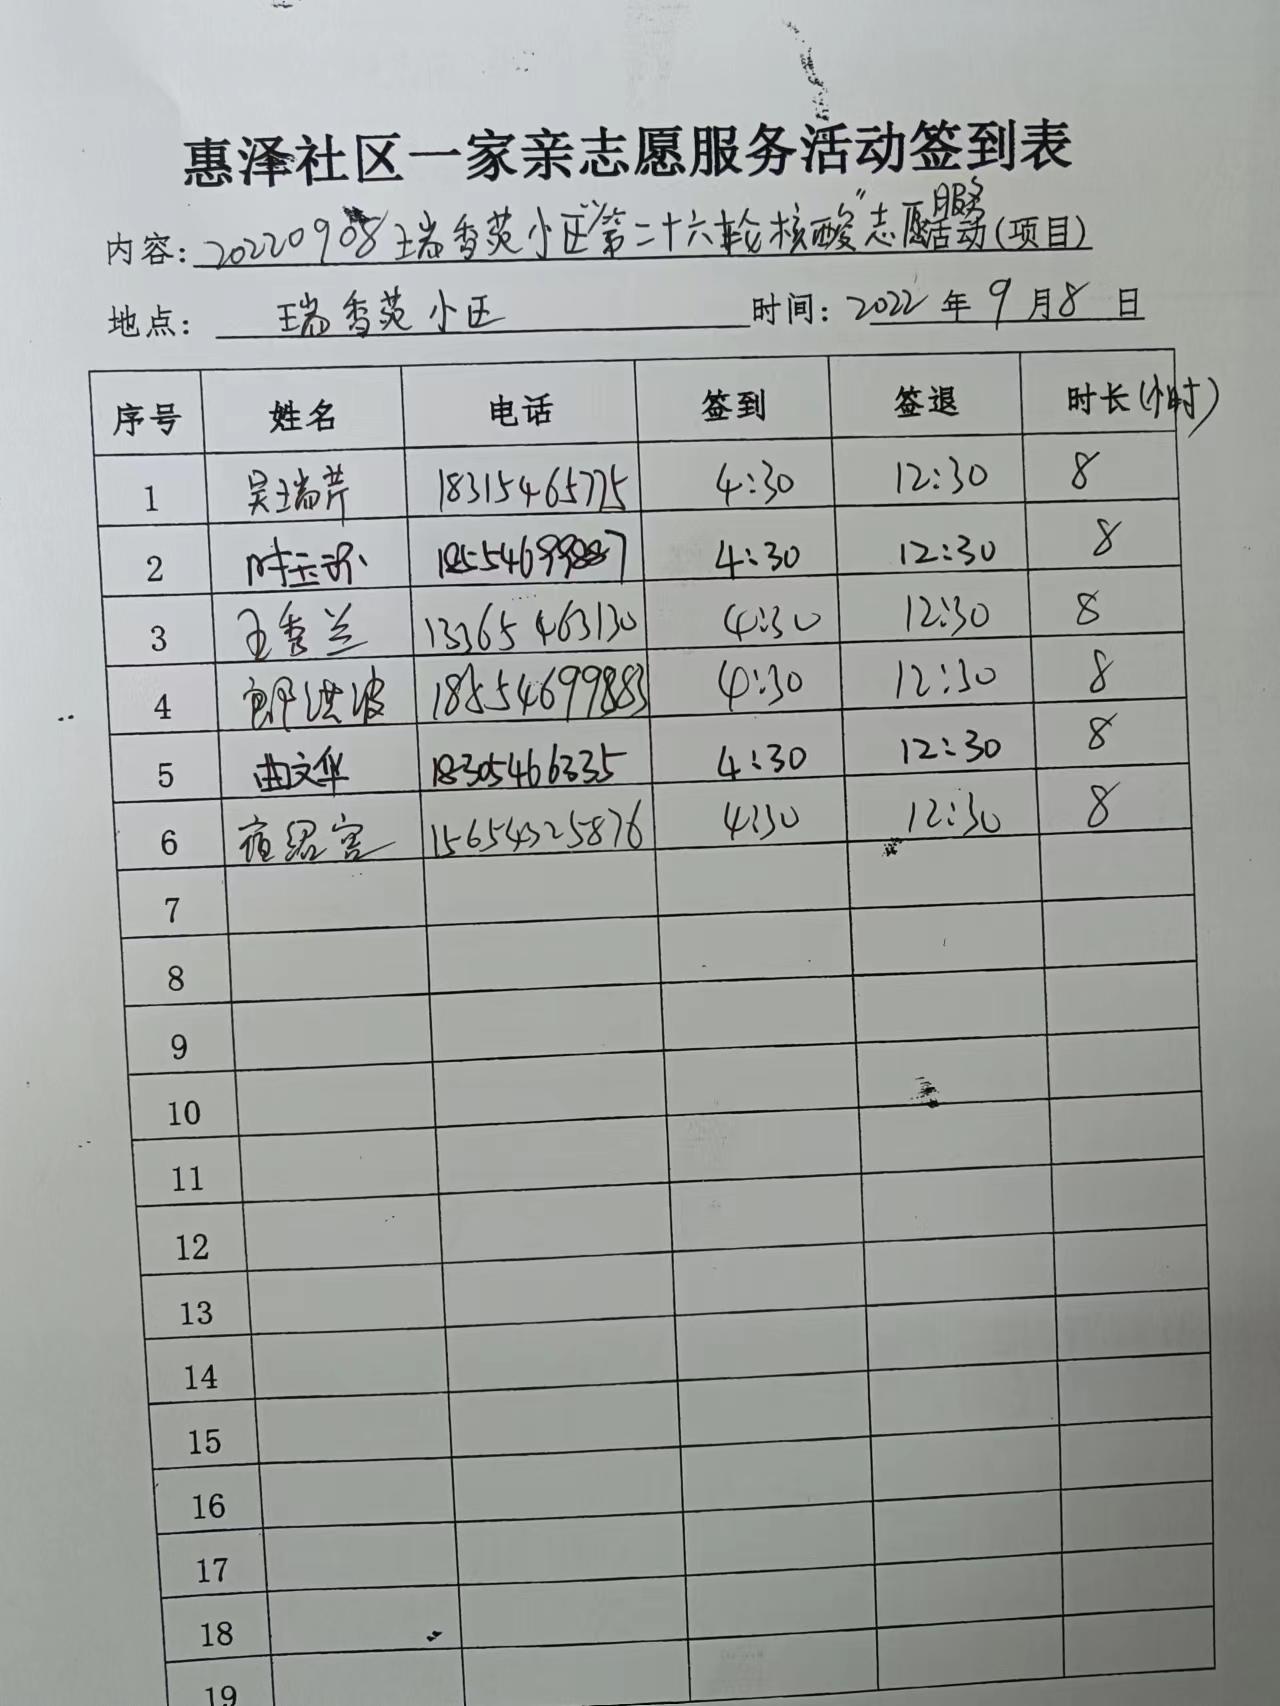 惠泽社区一家亲志愿服务活动签到表
内容: 20220908瑞香苑小区"第二十六轮核酸"志愿服务活动(项目)
地点: 瑞香苑小区 时间: 2022年9月8日
序号 姓名 电话 签到 签退 时长(小时)
1 吴瑞芹 18315465775 4:30 12:30 8
2 时玉 18554699887 4:30 12:30 8
3 王秀兰 13365463130 4:30 12:30 8
4 郎洪波 18554699883 4:30 12:30 8
5 曲文华 18305466335 4:30 12:30 8
6 15654325876 4:30 12:30 8
7
8
9
10
11
12
13
14
15
16
17
18
19